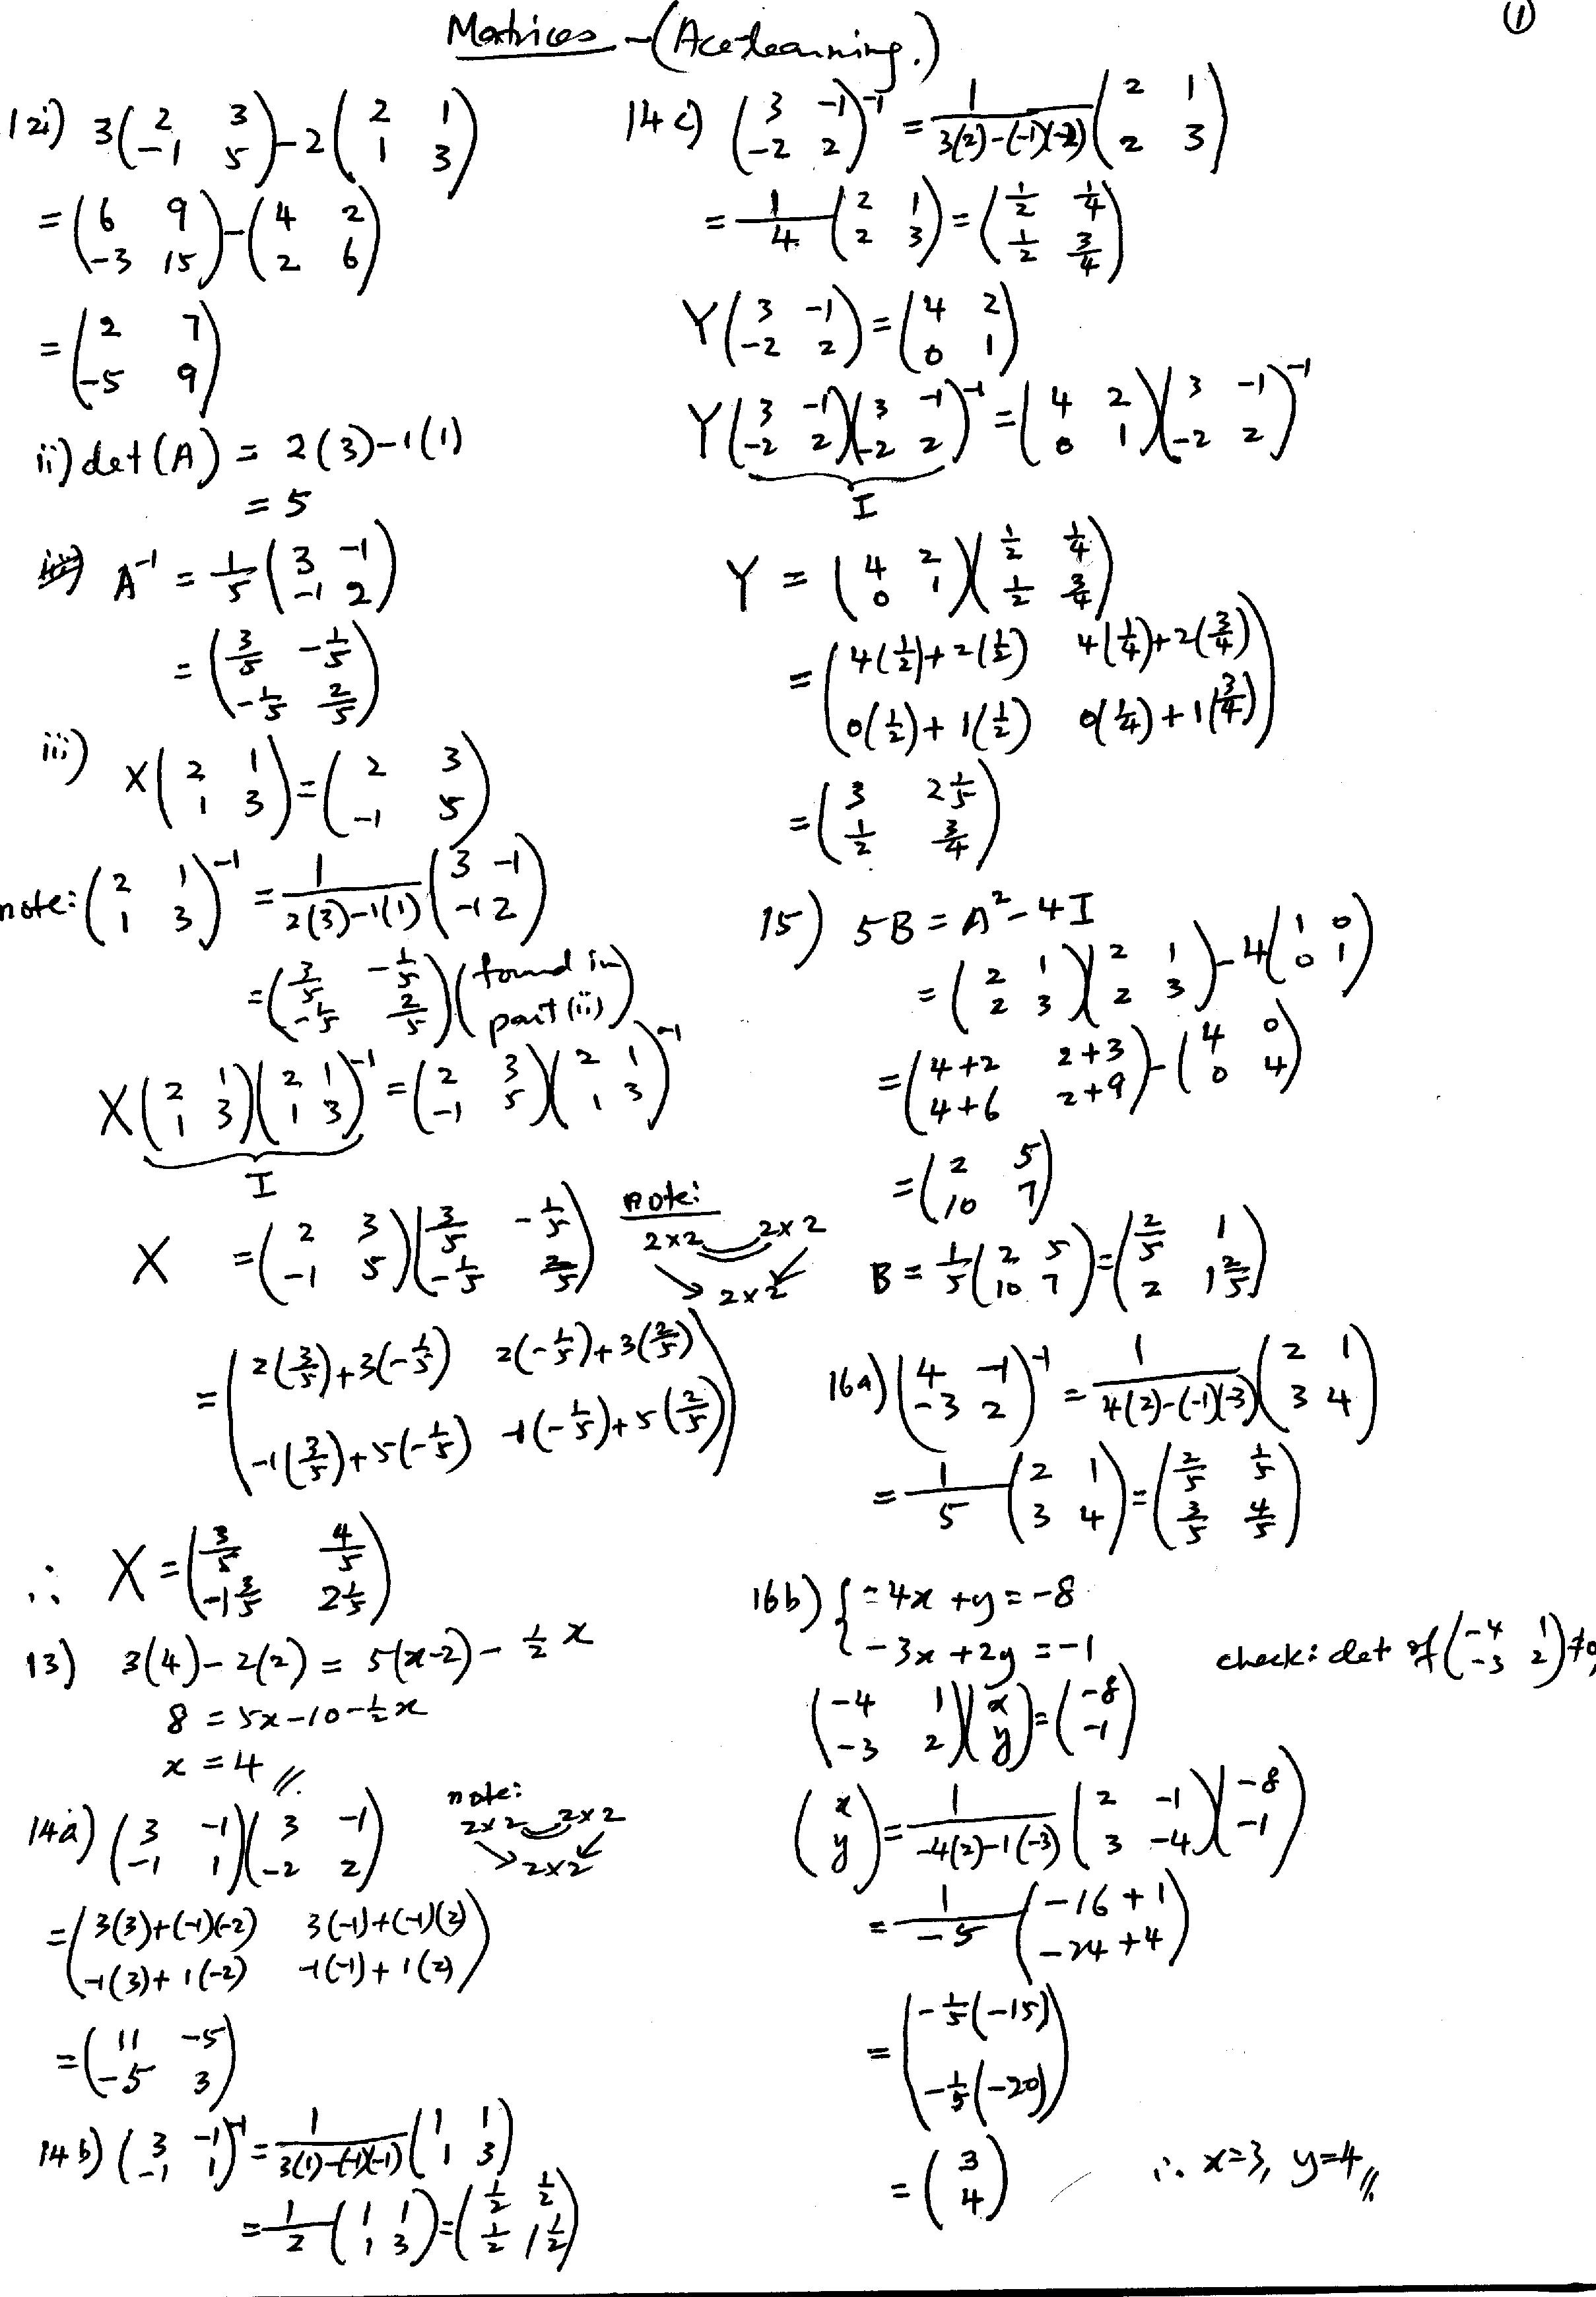 Matrices - (Acelearning.)
①
12i) 3(2 3; -1 5) - 2(2 1; 1 3)
= (6 9; -3 15) - (4 2; 2 6)
= (2 7; -5 9)
ii) det(A) = 2(3)-1(1)
= 5
A⁻¹ = 1/5 (3 -1; -1 2)
= (3/5 -1/5; -1/5 2/5)
iii) X(2 1; 1 3) = (2 3; -1 5)
note: (2 1; 1 3)⁻¹ = 1/(2(3)-1(1)) (3 -1; -1 2)
= (3/5 -1/5; -1/5 2/5) (found in part (ii))
X(2 1; 1 3)(2 1; 1 3)⁻¹ = (2 3; -1 5)(2 1; 1 3)⁻¹
I
X = (2 3; -1 5)(3/5 -1/5; -1/5 2/5)
note:
2×2 2×2
2×2
= (2(3/5)+3(-1/5) 2(-1/5)+3(2/5); -1(3/5)+5(-1/5) -1(-1/5)+5(2/5))
∴ X = (3/5 4/5; -1 3/5 2 1/5)
13) 3(4)-2(2) = 5(x-2) - 1/2 x
8 = 5x-10-1/2 x
x = 4 //
14a) (3 -1; -1 1)(3 -1; -2 2)
note:
2×2 2×2
2×2
= (3(3)+(-1)(-2) 3(-1)+(-1)(2); -1(3)+1(-2) -1(-1)+1(2))
= (11 -5; -5 3)
14b) (3 -1; -1 1)⁻¹ = 1/(3(1)-(-1)(-1)) (1 1; 1 3)
= 1/2 (1 1; 1 3) = (1/2 1/2; 1/2 1 1/2)
14c) (3 -1; -2 2)⁻¹ = 1/(3(2)-(-1)(-2)) (2 1; 2 3)
= 1/4 (2 1; 2 3) = (1/2 1/4; 1/2 3/4)
Y(3 -1; -2 2) = (4 2; 0 1)
Y(3 -1; -2 2)(3 -1; -2 2)⁻¹ = (4 2; 0 1)(3 -1; -2 2)⁻¹
I
Y = (4 2; 0 1)(1/2 1/4; 1/2 3/4)
= (4(1/2)+2(1/2) 4(1/4)+2(3/4); 0(1/2)+1(1/2) 0(1/4)+1(3/4))
= (3 2 1/5; 1/2 3/4)
15) 5B = A²-4I
= (2 1; 2 3)(2 1; 2 3) - 4(1 0; 0 1)
= (4+2 2+3; 4+6 2+9) - (4 0; 0 4)
= (2 5; 10 7)
B = 1/5 (2 5; 10 7) = (2/5 1; 2 1 2/5)
16a) (4 -1; -3 2)⁻¹ = 1/(4(2)-(-1)(-3)) (2 1; 3 4)
= 1/5 (2 1; 3 4) = (2/5 1/5; 3/5 4/5)
16b) { -4x + y = -8
-3x + 2y = -1
check: det of (-4 1; -3 2) ≠ 0,
(-4 1; -3 2)(x; y) = (-8; -1)
(x; y) = 1/(-4(2)-1(-3)) (2 -1; 3 -4)(-8; -1)
= 1/-5 (-16+1; -24+4)
= (-1/5(-15); -1/5(-20))
= (3; 4)
∴ x=3, y=4 //